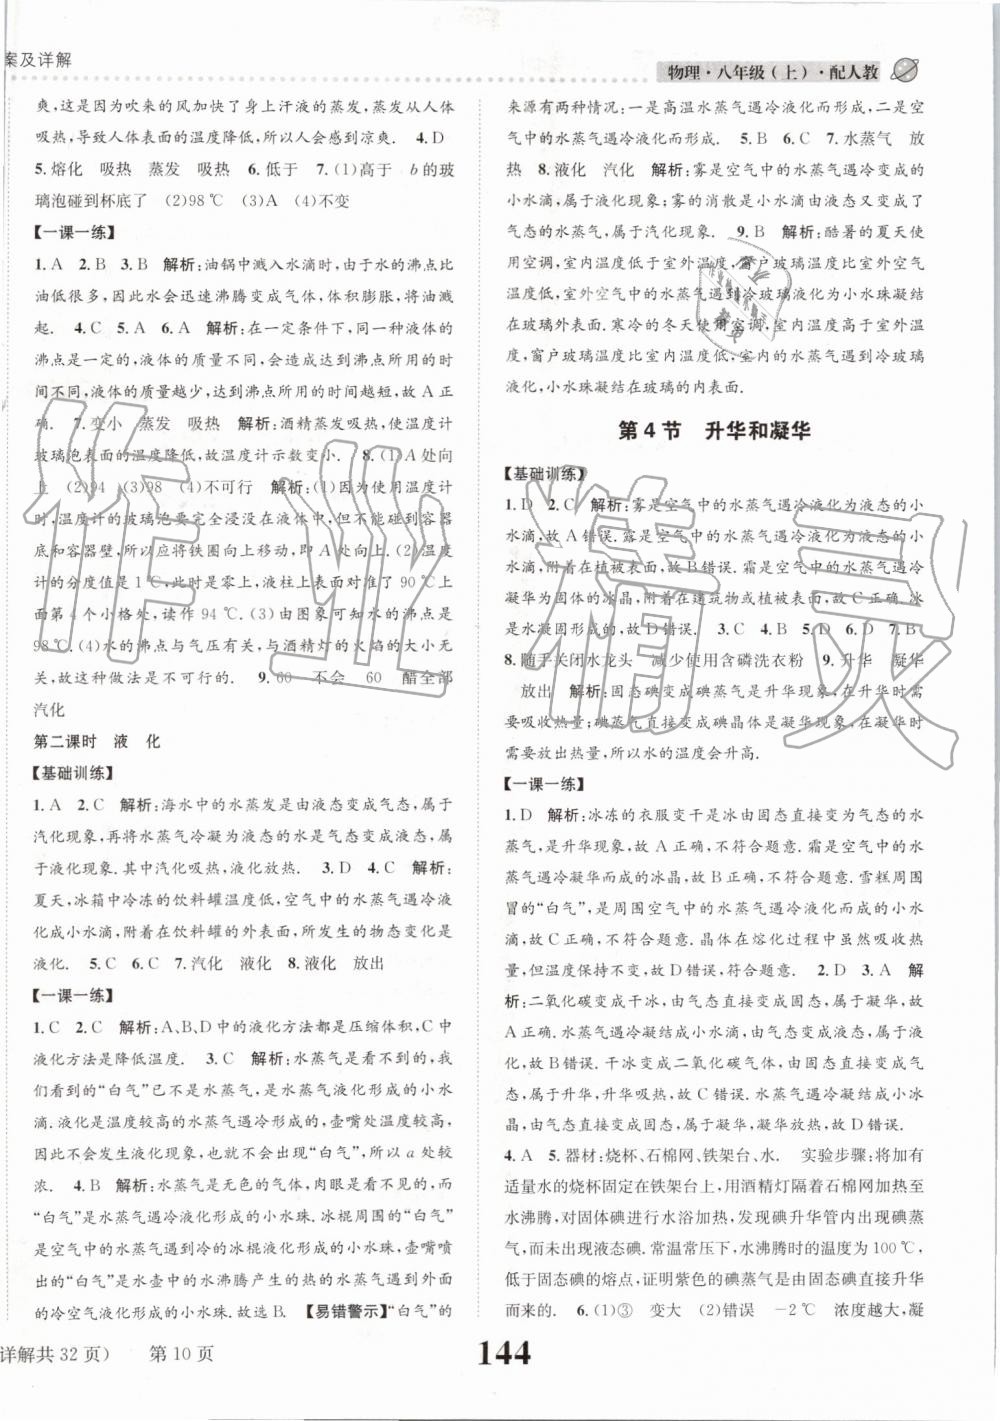 案及详解
物理·八年级（上）·配人教
爽，这是因为吹来的风加快了身上汗液的蒸发，蒸发从人体
吸热，导致人体表面的温度降低，所以人会感到凉爽.　4. D
5. 熔化　吸热　蒸发　吸热　6. 低于　7. (1)高于　b的玻
璃泡碰到杯底了　(2)98 ℃　(3)A　(4)不变
【一课一练】
1. A　2. B　3. B　解析：油锅中溅入水滴时，由于水的沸点比
油低很多，因此水会迅速沸腾变成气体，体积膨胀，将油溅
起.　4. C　5. A　6. A　解析：在一定条件下，同一种液体的
沸点是一定的，液体的质量不同，会造成达到沸点所用的时
间不同，液体的质量越少，达到沸点所用的时间越短，故A正
确.　7. 变小　蒸发　吸热　解析：酒精蒸发吸热，使温度计的
玻璃泡表面的温度降低，故温度计示数变小.　8. (1)A处向
上　(2)94　(3)98　(4)不可行　解析：(1)因使用温度计
时，温度计的玻璃泡要完全浸没在液体中，不能碰到容器
底和容器壁，所以应将铁圈向上移动，即A处向上. (2)温度
计的分度值是1 ℃，此时是零上，液柱上表面对准了90 ℃上
面第4个小格处，读作94 ℃. (3)由图象可知水的沸点是
98 ℃. (4)水的沸点与气压有关，与酒精灯的火焰的大小无
关，故这种做法是不可行的.　9. 60　不会　60　醋全部
汽化
第二课时　液　化
【基础训练】
1. A　2. C　解析：海水中的水蒸发是由液态变成气态，属于
汽化现象，再将水蒸气冷凝为液态的水是气态变成液态，属
于液化现象. 其中汽化吸热，液化放热.　3. D　4. C　解析：
夏天，冰箱中冷冻的饮料罐温度低，空气中的水蒸气遇冷液
化成小水滴，附着在饮料罐的外表面，所发生的物态变化是
液化.　5. C　6. C　7. 汽化　液化　8. 液化　放出
【一课一练】
1. C　2. C　解析：A、B、D中的液化方法都是压缩体积，C中
液化方法是降低温度.　3. C　解析：水蒸气是看不到的，我
们看到的“白气”已不是水蒸气，是水蒸气液化形成的小水
滴. 液化是温度较高的水蒸气遇冷形成的，壶嘴处温度较高，
因此不会发生液化现象，也就不会看到“白气”，所以a处较
浓.　4. B　解析：水蒸气是无色的气体，肉眼是看不到的，
而“白气”是水蒸气遇冷液化形成的小水珠. 冰棍周围的“白气”
是空气中的水蒸气遇到冷的冰棍液化形成的小水珠，壶嘴喷
出的“白气”是水壶中的水沸腾产生的热的水蒸气遇到外面
的冷空气液化形成的小水珠. 故选B.　【易错警示】“白气”的
来源有两种情况：一是高温水蒸气遇冷液化而形成，二是空
气中的水蒸气遇冷液化而形成.　5. B　6. C　7. 水蒸气　放
热　8. 液化　汽化　解析：雾是空气中的水蒸气遇冷变成的
小水滴，属于液化现象；雾的消散是小水滴由液态又变成了
气态的水蒸气，属于汽化现象.　9. B　解析：酷暑的夏天使
用空调，室内温度低于室外温度，窗户玻璃温度比室外空气
温度低，室外空气中的水蒸气遇到冷玻璃液化为小水珠凝结
在玻璃外表面. 寒冷的冬天使用空调，室内温度高于室外温
度，窗户玻璃温度比室内温度低，室内的水蒸气遇到冷玻璃
液化，小水珠凝结在玻璃的内表面.
第4节　升华和凝华
【基础训练】
1. D　2. C　解析：雾是空气中的水蒸气遇冷液化为液态的小
水滴，故A错误. 露是空气中的水蒸气遇冷液化为液态的小
水滴，附着在植被表面，故B错误. 霜是空气中的水蒸气遇冷
凝华为固体的冰晶，附着在建筑物或植被表面，故C正确. 冰
是水凝固形成的，故D错误.　3. C　4. B　5. D　6. B　7. B
8. 随手关闭水龙头　减少使用含磷洗衣粉　9. 升华　凝华
放出　解析：固态碘变成碘蒸气是升华现象，在升华时需
要吸收热量；碘蒸气直接变成碘晶体是凝华现象，在凝华时
需要放出热量，所以水的温度会升高.
【一课一练】
1. D　解析：冰冻的衣服变干是冰由固态直接变为气态的水
蒸气，是升华现象，故A正确，不符合题意. 霜是空气中的水
蒸气遇冷凝华而成的冰晶，故B正确，不符合题意. 雪糕周围
冒的“白气”，是周围空气中的水蒸气遇冷液化而成的小水
滴，故C正确，不符合题意. 晶体在熔化过程中虽然吸收热
量，但温度保持不变，故D错误，符合题意.　2. D　3. A　解
析：二氧化碳变成干冰，由气态直接变为固态，属于凝华，故A
正确. 水蒸气遇冷凝结成小水滴，由气态变成液态，属于液
化，故B错误. 干冰变成二氧化碳气体，由固态直接变成气
态，属于升华，故C错误. 水蒸气遇冷凝结成小冰晶，由气态
直接变成固态，属于凝华，故D错误.
4. A　5. 器材：烧杯、石棉网、铁架台、水.　实验步骤：将加有
适量水的烧杯固定在铁架台上，用酒精灯隔着石棉网加热至
水沸腾，对固体碘进行水浴加热，发现碘升华管内出现碘蒸
气，而未出现液态碘. 常温常压下，水沸腾时的温度为100 ℃，
低于固态碘的熔点，证明紫色的碘蒸气是由固态碘直接升华
而来的.　6. (1)③　变大　(2)错误　－2 ℃　浓度越大，凝
详解共32页）　第10页
144
作业精灵